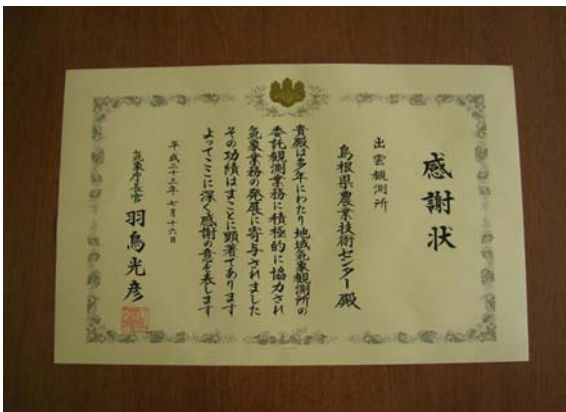 感謝状
出雲観測所
島根県農業技術センター殿
貴殿は多年にわたり地域気象観測所の
委託観測業務に積極的に協力され
気象業務の発展に寄与されました
その功績はまことに顕著であります
よってここに深く感謝の意を表します
平成二十三年七月十六日
気象庁長官 羽鳥光彦